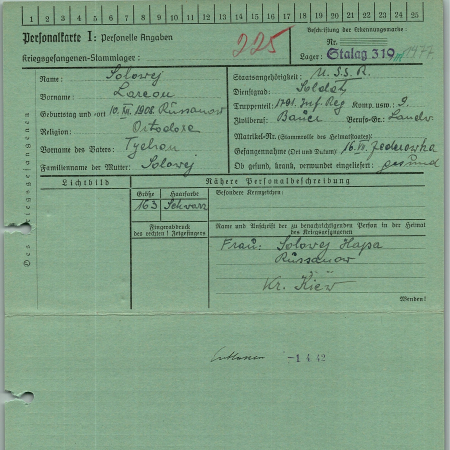 1 2 3 4 5 6 7 8 9 10 11 12 13 14 15 16 17 18 19 20 21 22 23 24 25
Personalkarte I: Personelle Angaben
225
Beschriftung der Erkennungsmarke:
Nr.
Kriegsgefangenen-Stammlager:
Lager: Stalag 319
Des Kriegsgefangenen
Name: Solowej
Staatsangehörigkeit: U.S.S.R.
Vorname:
Dienstgrad: Soldat
Geburtstag und -ort 10.XII.1906 Russanow
Truppenteil: 1791. Inf. Reg Komp. usw. 9.
Religion: Ortodoxe
Zivilberuf: Bauer Berufs-Gr.: Landw.
Matrikel-Nr. (Stammrolle des Heimatstaates):
Vorname des Vaters:
Gefangennahme (Ort und Datum):
Familienname der Mutter: Solowej
Ob gesund, krank, verwundet eingeliefert: gesund
Lichtbild
Nähere Personalbeschreibung
Größe
Haarfarbe
Besondere Kennzeichen:
163
Schwarz
Fingerabdruck
des rechten! Zeigefingers
Name und Anschrift der zu benachrichtigenden Person in der Heimat
des Kriegsgefangenen
Frau: Solovej
Russanow
Kr. Kiew
Wenden!
-1 4 42